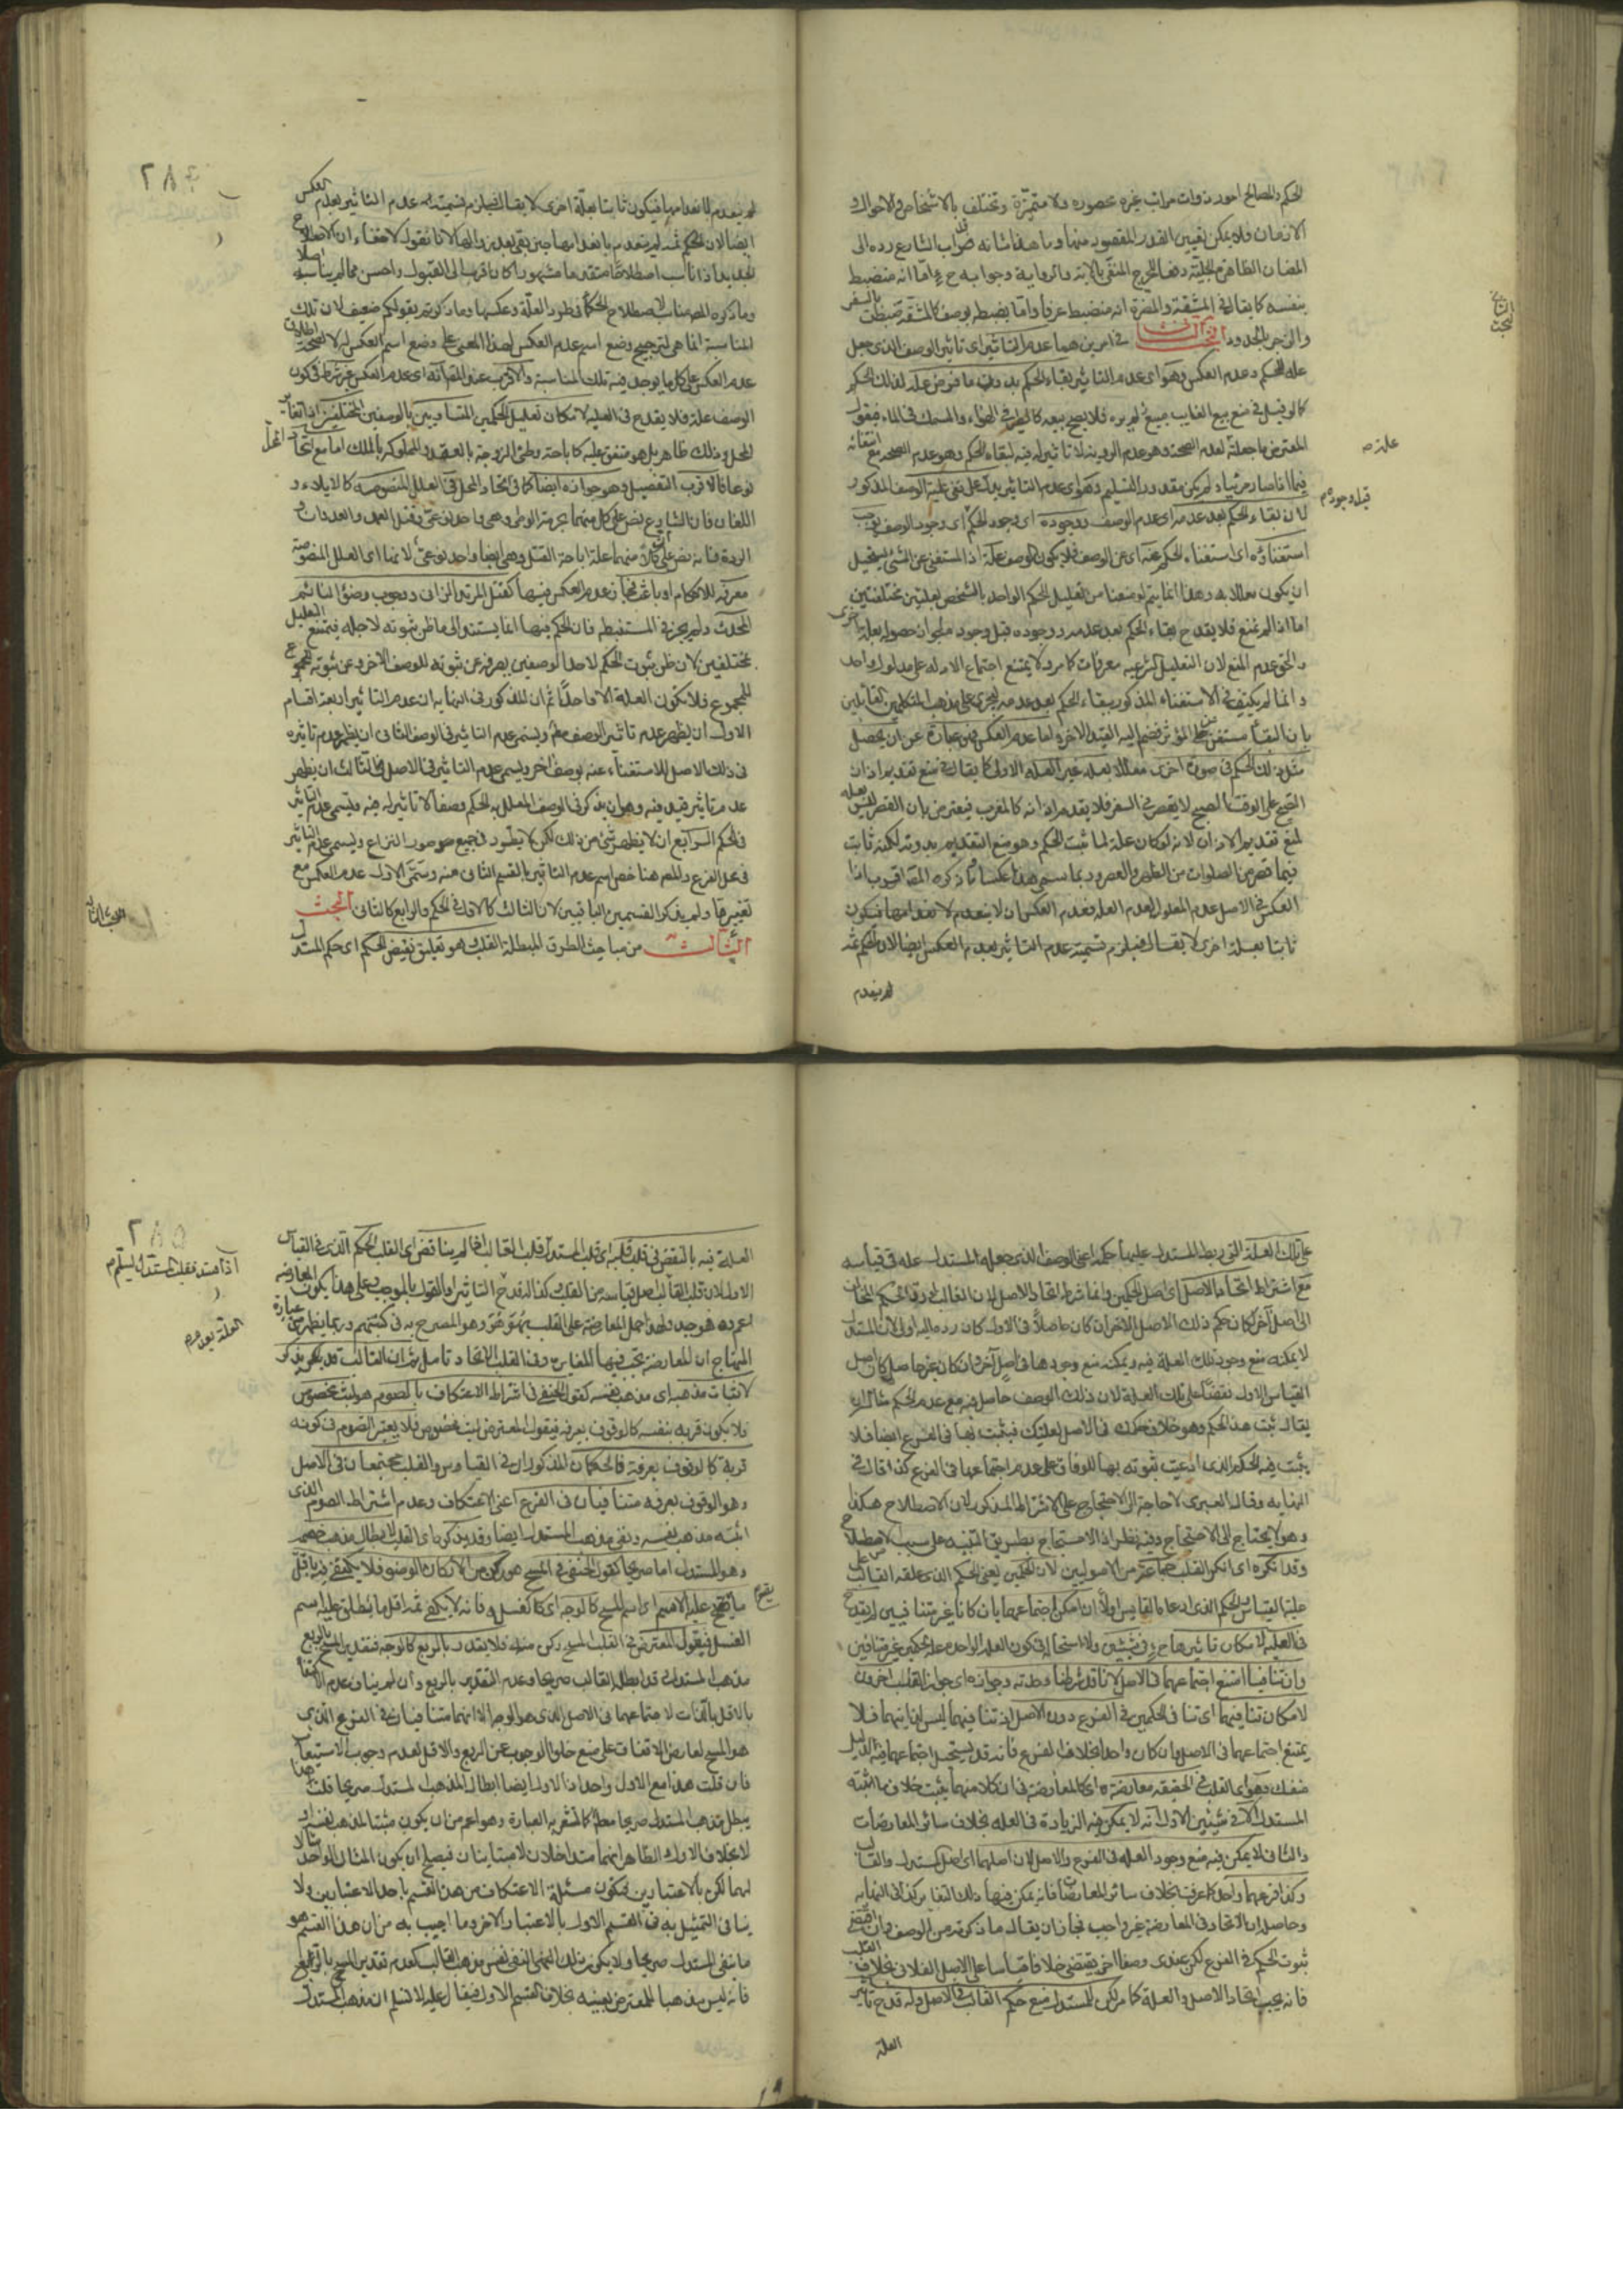 الحكم والمصالح امور ذوات مراتب غير محصورة ولا متميزة وتختلف بالاشخاص والاحوال و
الازمان فلا يمكن تعيين القدر المقصود منها وما هذا شانه فداب الشارع رده الى
المظان الظاهرة الجلية دفعا للحرج المنفى بالاية والرواية وجوابه ح
بنفسه كما يقال فى المشقة والمضرة انه منضبط عرفا واما بضبطه بوصف كالمشقة ضبطت بالسفر
والزجر بالحدود البحث الثانى فى امرين هما عدم التاثير اى تاثير الوصف الذى جعل
علة للحكم وعدم العكس وهو اى عدم التاثير بقاء الحكم بدون ما فرض علة لذلك الحكم
كما لو قيل فى منع بيع الغايب مبيع لم يره فلا يصح بيعه كالطير فى الهواء والسمك فى الماء فيقول
المعترض ما جعلته لعدم الصحة وهو عدم الروية لا تاثير له فيه لبقاء الحكم وهو عدم الصحة مع انتفائه
فيما اذا صار مرئيا ولم يكن مقدور التسليم وهو اى عدم التاثير يدل على نفى علية الوصف المذكور
لان بقاء الحكم بعد عدمه اى عدم الوصف ووجوده اى وجود الحكم اى وجود الوصف يوجب
استغناؤه اى استغناء الحكم عنه اى عن الوصف فلا يكون الوصف علة اذ المستغنى عن الشئ يستحيل
ان يكون معللا به وهذا انما يتم لو منعنا من التعليل الحكم الواحد بالشخص بعلتين مختلفتين
اما اذا لم نمنع فلا يقدح بقاء الحكم بعد عدمه ووجوده قبل وجوده لجواز حصوله بعلة اخرى
والحق عدم المنع لان التعليل الشرعية معرفات كما مر ولا يمتنع اجتماع الادلة على مدلول واحد
وانما لم يكتف فى الاستغناء المذكور ببقاء الحكم بعد عدمه ليجرى على مذهب المتكلمين القائلين
بان البقاء مستغن عن المؤثر فضم اليه القيد الاخر واما عدم العكس فهو عبارة عن ان يحصل
مثل ذلك الحكم فى صورة اخرى معللا بعلة غير العلة الاولى كما يقال فى منع تقديم اذان
الصبح على الوقت الصبح لا يقصر فى السفر فلا يقدم اذانه كالمغرب فيعترض بان القصر ليس بعلة
لمنع تقديم الاذان لانه لو كان علة لما ثبت الحكم وهو منع التقديم بدونه لكنه ثابت
فيما قصر من الصلوات من الظهر والعصر وبما سمى هذا عكسا
العكس فى الاصل عدم المعلول لعدم العلة فعدم العكس ان لا ينعدم لانعدامها فيكون
ثابتا بعلة اخرى لا يقال فيلزم تسمية عدم التاثير بعدم العكس ايضا لان الحكم ثمه
لم ينعدم
البحث الثانى
علته ص
قبل وجوده م
٢٨٤
لم ينعدم لانعدامها فيكون ثابتا بعلة اخرى لا يقال فيلزم تسمية عدم التاثير بعدم العكس
ايضا لان الحكم ثمه لم ينعدم بانعدامها حين بقى بعد زوالها لانا نقول لا خفاء ان الاصطلاح
الجديد اذا ناسب اصطلاحا متقدما مشهورا كان اقرب الى القبول واحسن مما لم يناسبه اصلا
وما ذكره المص مناسب لاصطلاح الحكماء فى طرد العلة وعكسها وما ذكرتم بقولكم ضعيف لان تلك
المناسبة انما هى لترجيح وضع اسم عدم العكس لهذا المعنى على وضع اسم العكس له لا لتصحيح اطلاق
عدم العكس على كل ما يوجد فيه تلك المناسبة والاقرب عند المص انه اى عدم العكس غير شرط فى كون
الوصف علة فلا يقدح فى العلية لامكان تعليل الحكمين المتساويين بالوصفين المختلفين
المحل وذلك ظاهر بل هو متفق عليه كاباحة وطئ الزوجة بالعقد والمملوكة بالملك اما مع اتحاد المحل
نوعا فالاقرب التفصيل وهو جوازه ايضا كما فى اتحاد المحل فى العلل المنصوصة كالايلاء و
اللعان فان الشارع نص على كل منهما بحرمة الوطى وهى واحد نوعى وقتل العمد والعدوان و
الردة فانه نص على ان كلا منهما علة اباحة القتل وهى ايضا واحد نوعى لانها اى العلل المنصوصة
معرفة للاحكام او باعثة فجاز عدم العكس فيها كقتل المرتد الزانى ووجوب وضوء النائم
المحدث ولم يجز فى المستنبطة فان الحكم فيها انما يستند الى ما ظن ثبوته لاجله فيمتنع التعليل
بمختلفين لان ظن ثبوت الحكم لاحد الوصفين يصرفه عن ثبوته للوصف الاخر وعن ثبوته للمجموع
للمجموع فلا تكون العلة الا واحدا ثم ان المذكور فى النهاية ان عدم التاثير اربعة اقسام
الاول ان يظهر عدم تاثير الوصف مطلقا ويسمى عدم التاثير فى الوصف الثانى ان يظهر عدم تاثيره
فى ذلك الاصل للاستغناء عنه بوصف اخر ويسمى عدم التاثير فى الاصل الثالث ان يظهر
عدم تاثير قيد فيه وهو ان يذكر فى الوصف المعلل به الحكم وصفا لا تاثير له فيه ويسمى عدم التاثير
فى الحكم الرابع ان لا يظهر شئ من ذلك لكن لا يطرد فى جميع صور النزاع ويسمى عدم التاثير
فى محل الفرع والمص هنا خص اسم عدم التاثير بالقسم الثانى منه وسمى الاول عدم العكس مع
تغيير ما ولم يذكر القسمين الباقيين لان الثالث كالاول فى الحكم والرابع كالثانى البحث
الثالث من مباحث الطرق المبطلة القلب هو تعليق نقيض الحكم اى حكم المستدل
البحث الثالث
على تلك العلة التى ربط المستدل عليها حكمه اعنى الوصف الذى جعله المستدل علة فى قياسه
مع اشتراط اتحاد الاصل اى اصل الحكمين وانما شرط اتحاد الاصل لان القالب لو رد
الى اصل آخر لكان حكم ذلك الاصل الاخر ان كان حاصلا فى الاول كان رده اليه اولى لان المستدل
لا يمكنه منع وجود تلك العلة فيه ويمكنه منع وجودها فى اصل آخر وان كان غير حاصل كان اصل
القياس الاول نقضا على تلك العلة لان ذلك الوصف حاصل فيه مع عدم الحكم مثاله ان
يقال ثبت هذا الحكم وهو خلاف حكمك فى الاصل لعلتك فيثبت بها فى الفرع ايضا فلا
يثبت فيه الحكم الذى ادعيت ثبوته بها للوفاق على عدم اجتماعهما فى الفرع كذا قال فى
النهاية وقال العبرى لا حاجة الى الاحتجاج على الاشتراط المذكور لان الاصطلاح هكذا
وهو لا يحتاج الى الاحتجاج وفيه نظر اذ الاحتجاج بطريق التنبيه على سبب الاصطلاح
وقد انكره اى انكر القلب جماعة من الاصوليين لان الحكمين يعنى الحكم الذى علقه القالب على
علية القياس والحكم الذى ادعاه القايس اولا ان امكن اجتماعهما بان كانا غير متنافيين لم يقدح
فى العلية لامكان تاثيرها ح فى شيئين ولا استحالة فى كون العلة الواحدة علة لحكمين غير متنافيين
وان تنافيا امتنع اجتماعهما فى الاصل لانا قد شرطنا وحدته وجوازه اى جواز القلب اخرون
لامكان تنافيهما اى تنافى الحكمين فى الفرع دون الاصل اذ تنافيهما ليس لذاتيهما فلا
يمتنع اجتماعهما فى الاصل وان كان واحدا بخلاف الفرع فانه قد يستحيل اجتماعهما فيه لدليل
منفك وهو اى القلب فى الحقيقة معارضة اى كالمعارضة فى ان كلا منهما يثبت خلاف ما اثبته
المستدل الا فى شيئين الاول انه لا يمكن فيه الزيادة فى العلة بخلاف سائر المعارضات
والثانى لا يمكن فيه منع وجود العلة فى الفرع والاصل لان اصلهما اى اصل المستدل والقالب
وكذا فرعهما واحد كما عرفت بخلاف سائر المعارضات فانه يمكن فيها ذلك التغاير كذا فى النهاية
وحاصله ان الاتحاد فى المعارضة غير واجب فجاز ان يقال ما ذكرته من الوصف وان اقتضى
ثبوت الحكم فى الفرع لكن عندى وصفا اخر يقتضى خلافه قياسا على الاصل الفلانى بخلاف القلب
فانه يجب اتحاد الاصل والعلة كما مر لكن للمستدل منع حكم القالب فى الاصل وله قدح تاثير
العلة
٢٨٥
العلة فيه بالنقض فى قلب قلبه اى قلب المستدل قلب القالب اذا لم يناقض اى القلب الحكم الذى فى القياس
الاول لان قلب القالب اصل قياسه من القلب كذا القدح التاثير او بالقول بالموجب وعلى هذا يكون المعارضة
اعم منه هو جيد ولهذا حمل المعارضة على القلب بهو هو وهو المصرح به فى كتبهم وربما يظهر من عبارة
المنهاج ان المعارضة تجب فيها المغايرة وفى القلب الاتحاد تامل ثم ان القالب قد يكون
لاثبات مذهبه اى مذهب نفسه كقول الحنفى فى اشتراط الاعتكاف بالصوم هو لبث مخصوص
فلا يكون قربة بنفسه كالوقوف بعرفة فيقول المعترض لبث مخصوص فلا يعتبر الصوم فى كونه
قربة كالوقوف بعرفة فالحكمان المذكوران فى القياس والقلب مجتمعان فى الاصل
وهو الوقوف بعرفة متنافيان فى الفرع اعنى الاعتكاف وعدم اشتراط الصوم الذى
اثبته مذهب نفسه ونفى مذهب المستدل ايضا وقد يذكر اى القلب لابطال مذهب خصمه
وهو المستدل اما صريحا كقول الحنفى فى المسح هو ركن من الاركان الوضوء فلا يكفى فيه باقل
ما يقع عليه الاسم اى اسم المسح كالوجه اى كالغسل فيه فانه لا يكفى ثمه اقل ما يطلق عليه اسم
الغسل فيقول المعترض فى القلب المسح ركن منه فلا يقدر بالربع كالوجه فتقدير المسح بالربع
مذهب المستدل قد ابطله القالب صريحا وعدم التقدير بالربع وان لم يناف عدم الاكتفاء
بالاقل بالذات لاجتماعهما فى الاصل الذى هو الوجه الا انهما متنافيان فى الفرع الذى
هو المسح لعارض الاتفاق على منع خلو الوجوب عن الربع والاقل لعدم وجوب الاستيعاب
فان قلت هذا مع الاول واحد اذ الاول ايضا ابطال المذهب المستدل صريحا قلت هذا
يبطل مذهب المستدل صريحا مطلقا كما تشعر به العبارة وهو اعم من ان يكون مثبتا لمذهب نفسه او
لا بخلاف الاول الظاهر انهما متداخلان لا متباينان فيصلح ان يكون المثال الواحد مثالا
لهما لكن بالاعتبارين فتكون مسئلة الاعتكاف من هذا القسم باحد الاعتبارين ولا
ينافى التمثيل به فى القسم الاول بالاعتبار الاخر وما اجيب به من ان هذا القسم هو
ما ينفى المستدل صريحا ولا يكون ذلك المعنى المنفى نفس مذهب القالب كعدم تقدير المسح بالربع
فانه ليس مذهبا للمعترض بعينه بخلاف القسم الاول فيقال عليه لا نسلم ان مذهب المستدل